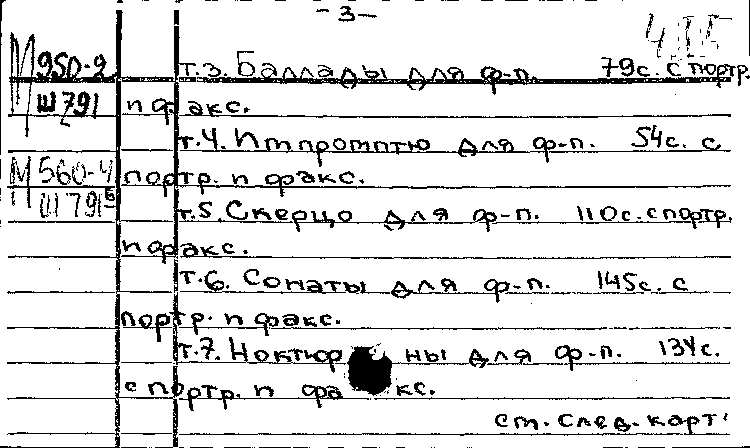 - 3 -
М950-2 т.3. Баллады для ф-п. 79с. с портр.
Ш791 и факс.
т.4. Импромптю для ф-п. 54с. с
М560-4 портр. и факс.
Ш791б т.5. Скерцо для ф-п. 110с. с портр.
и факс.
т.6. Сонаты для ф-п. 145с. с
портр. и факс.
т.7. Ноктюрны для ф-п. 134с.
с портр. и факс.
см. след. карт.